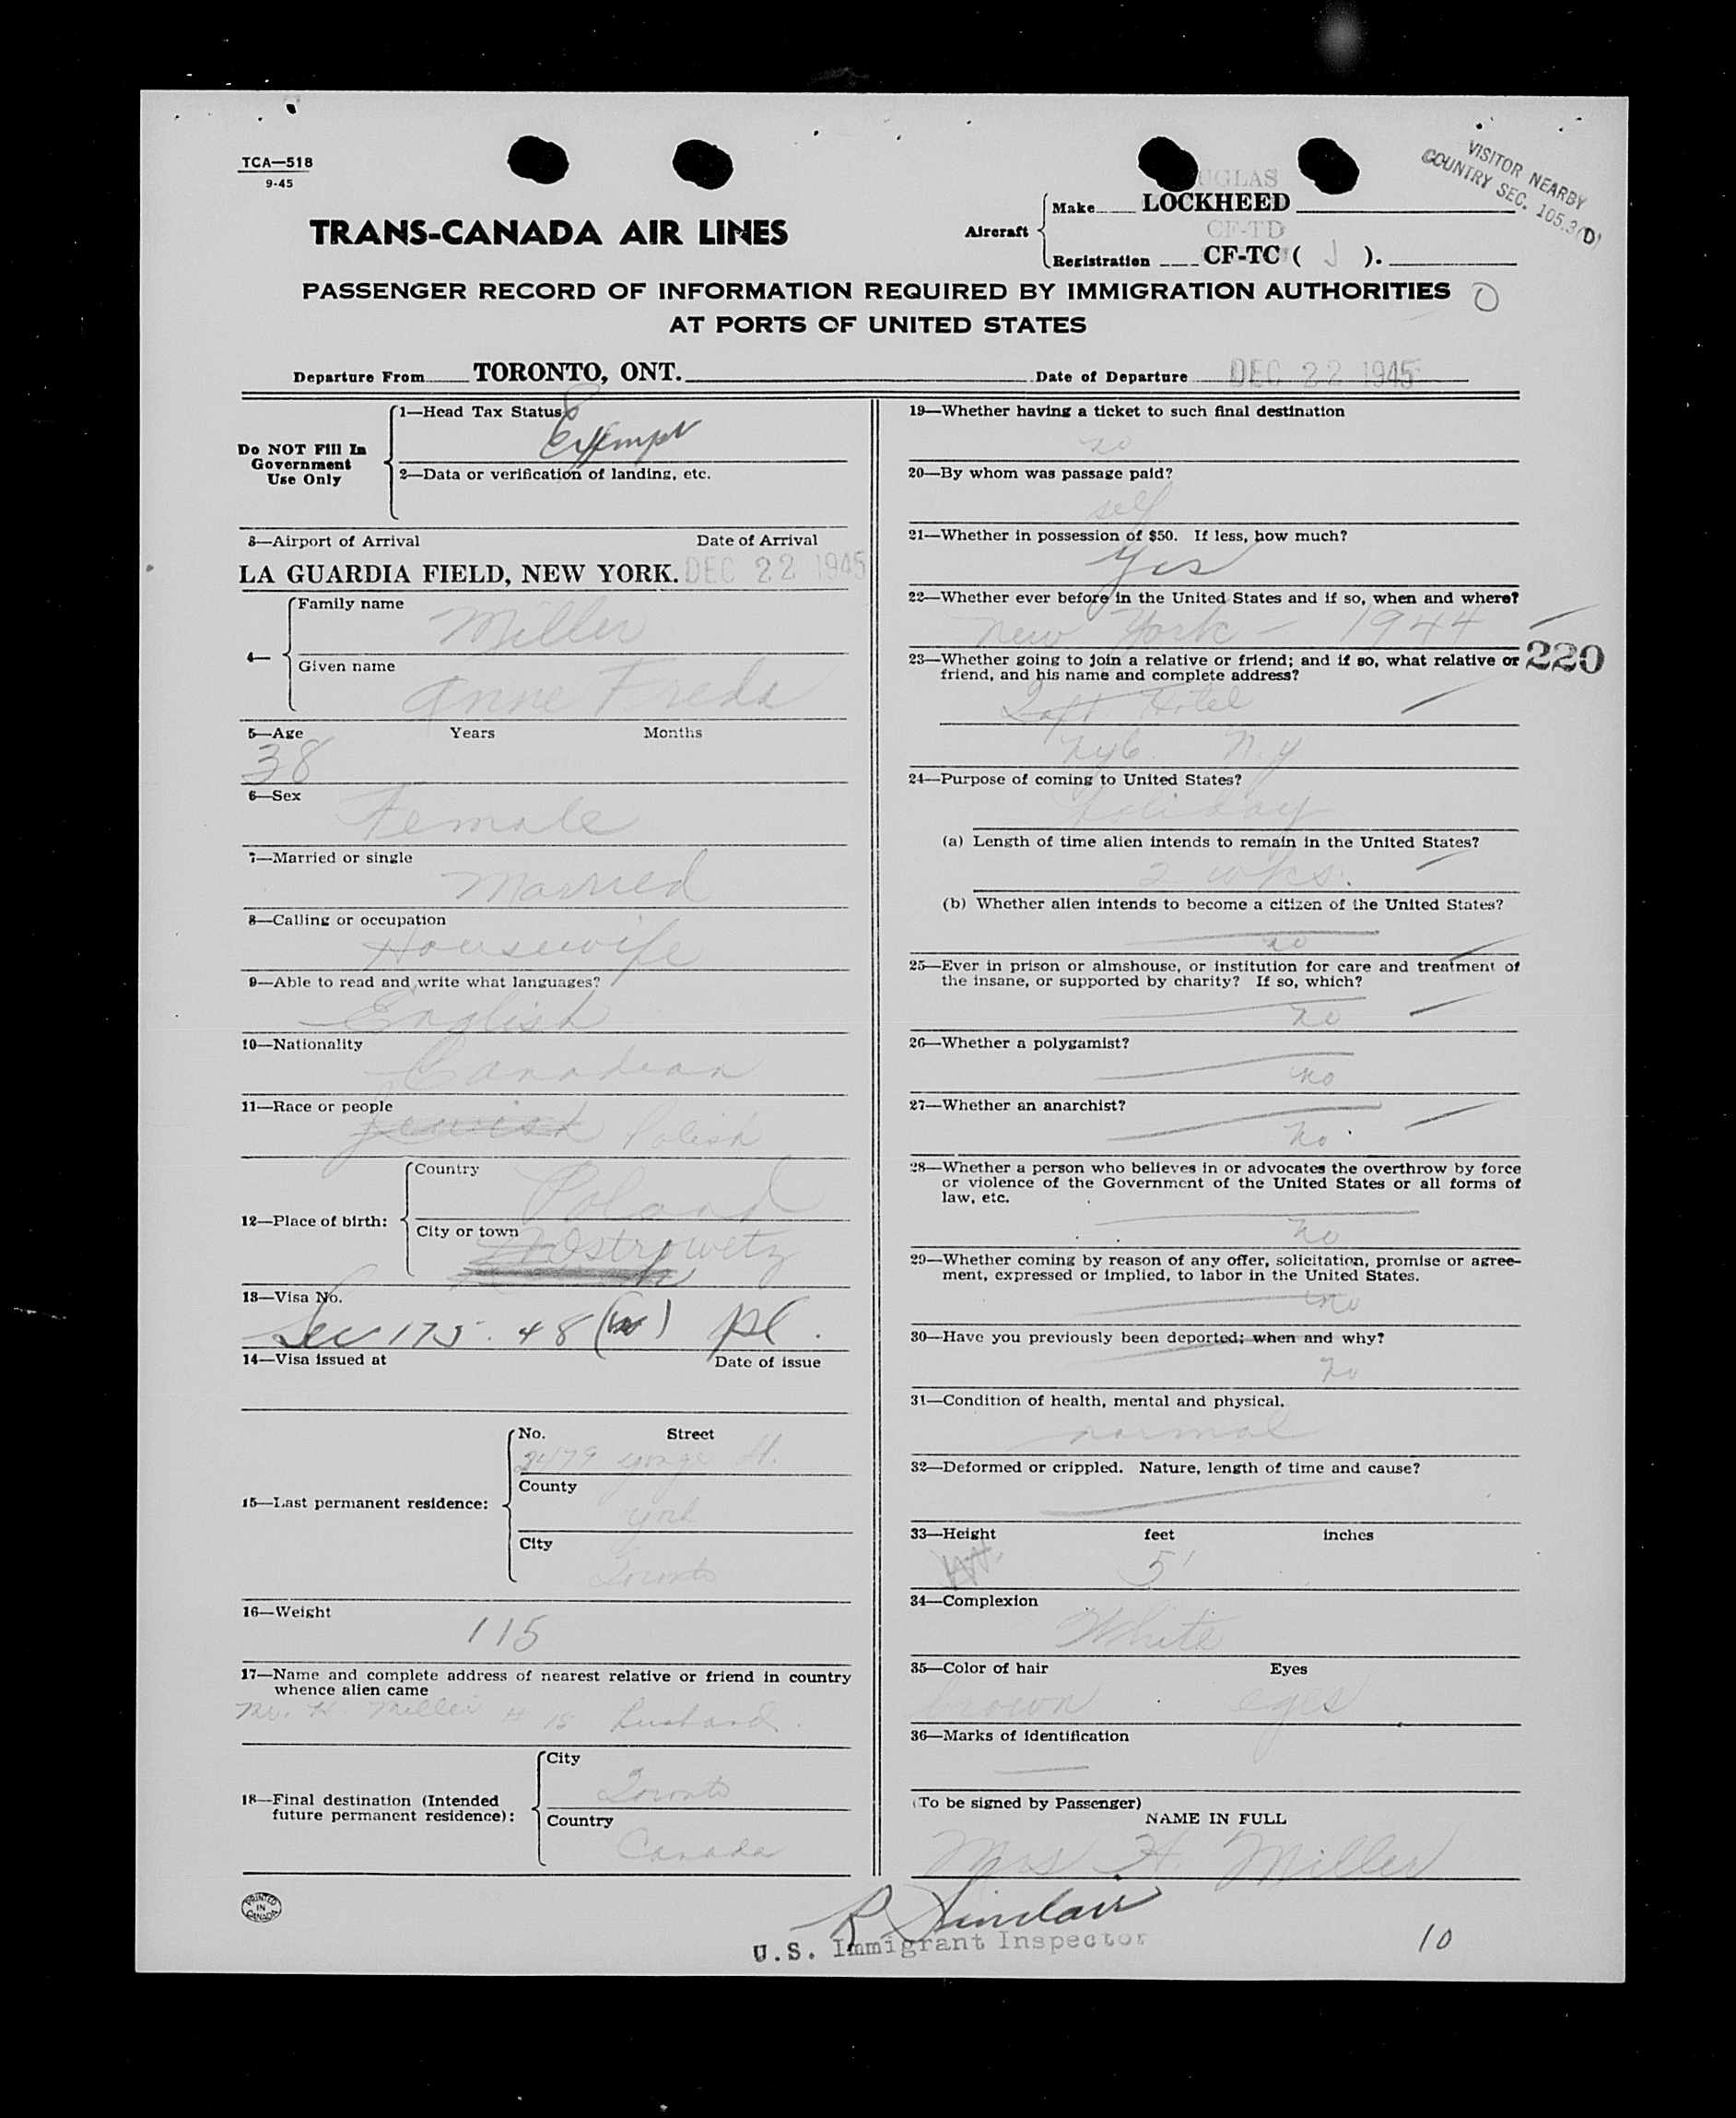 TCA—518
9-45
VISITOR NEARBY
COUNTRY SEC. 105.3(D)
UGLAS
TRANS-CANADA AIR LINES
Aircraft
Make LOCKHEED
CF-TD
Registration CF-TC ( J ).
PASSENGER RECORD OF INFORMATION REQUIRED BY IMMIGRATION AUTHORITIES
AT PORTS OF UNITED STATES
Departure From TORONTO, ONT. Date of Departure DEC 22 1945
Do NOT Fill In
Government
Use Only
1—Head Tax Status
Exempt
2—Data or verification of landing, etc.
3—Airport of Arrival Date of Arrival
LA GUARDIA FIELD, NEW YORK. DEC 22 1945
4—
Family name
Miller
Given name
Anne Freda
5—Age Years Months
38
6—Sex
Female
7—Married or single
Married
8—Calling or occupation
Housewife
9—Able to read and write what languages?
English
10—Nationality
Canadian
11—Race or people
Jewish Polish
12—Place of birth:
Country
Poland
City or town
Ostrowetz
13—Visa No.
Sec 175.48 pl.
14—Visa issued at Date of issue
15—Last permanent residence:
No. Street
2479 Yonge St.
County
York
City
Toronto
16—Weight
115
17—Name and complete address of nearest relative or friend in country
whence alien came
Mr. H. Miller husband.
18—Final destination (Intended
future permanent residence):
City
Toronto
Country
Canada
PRINTED
IN
CANADA
19—Whether having a ticket to such final destination
no
20—By whom was passage paid?
self
21—Whether in possession of $50. If less, how much?
Yes
22—Whether ever before in the United States and if so, when and where?
New York - 1944
220
23—Whether going to join a relative or friend; and if so, what relative or
friend, and his name and complete address?
Taft Hotel
NYC. N.Y
24—Purpose of coming to United States?
Holiday
(a) Length of time alien intends to remain in the United States?
2 wks.
(b) Whether alien intends to become a citizen of the United States?
no
25—Ever in prison or almshouse, or institution for care and treatment of
the insane, or supported by charity? If so, which?
no
26—Whether a polygamist?
no
27—Whether an anarchist?
no
28—Whether a person who believes in or advocates the overthrow by force
or violence of the Government of the United States or all forms of
law, etc.
no
29—Whether coming by reason of any offer, solicitation, promise or agree-
ment, expressed or implied, to labor in the United States.
no
30—Have you previously been deported; when and why?
no
31—Condition of health, mental and physical.
normal
32—Deformed or crippled. Nature, length of time and cause?
33—Height feet inches
5'
34—Complexion
White
35—Color of hair Eyes
brown eyes
36—Marks of identification
(To be signed by Passenger)
NAME IN FULL
Mrs H. Miller
R Sinclair
U.S. Immigrant Inspector
10